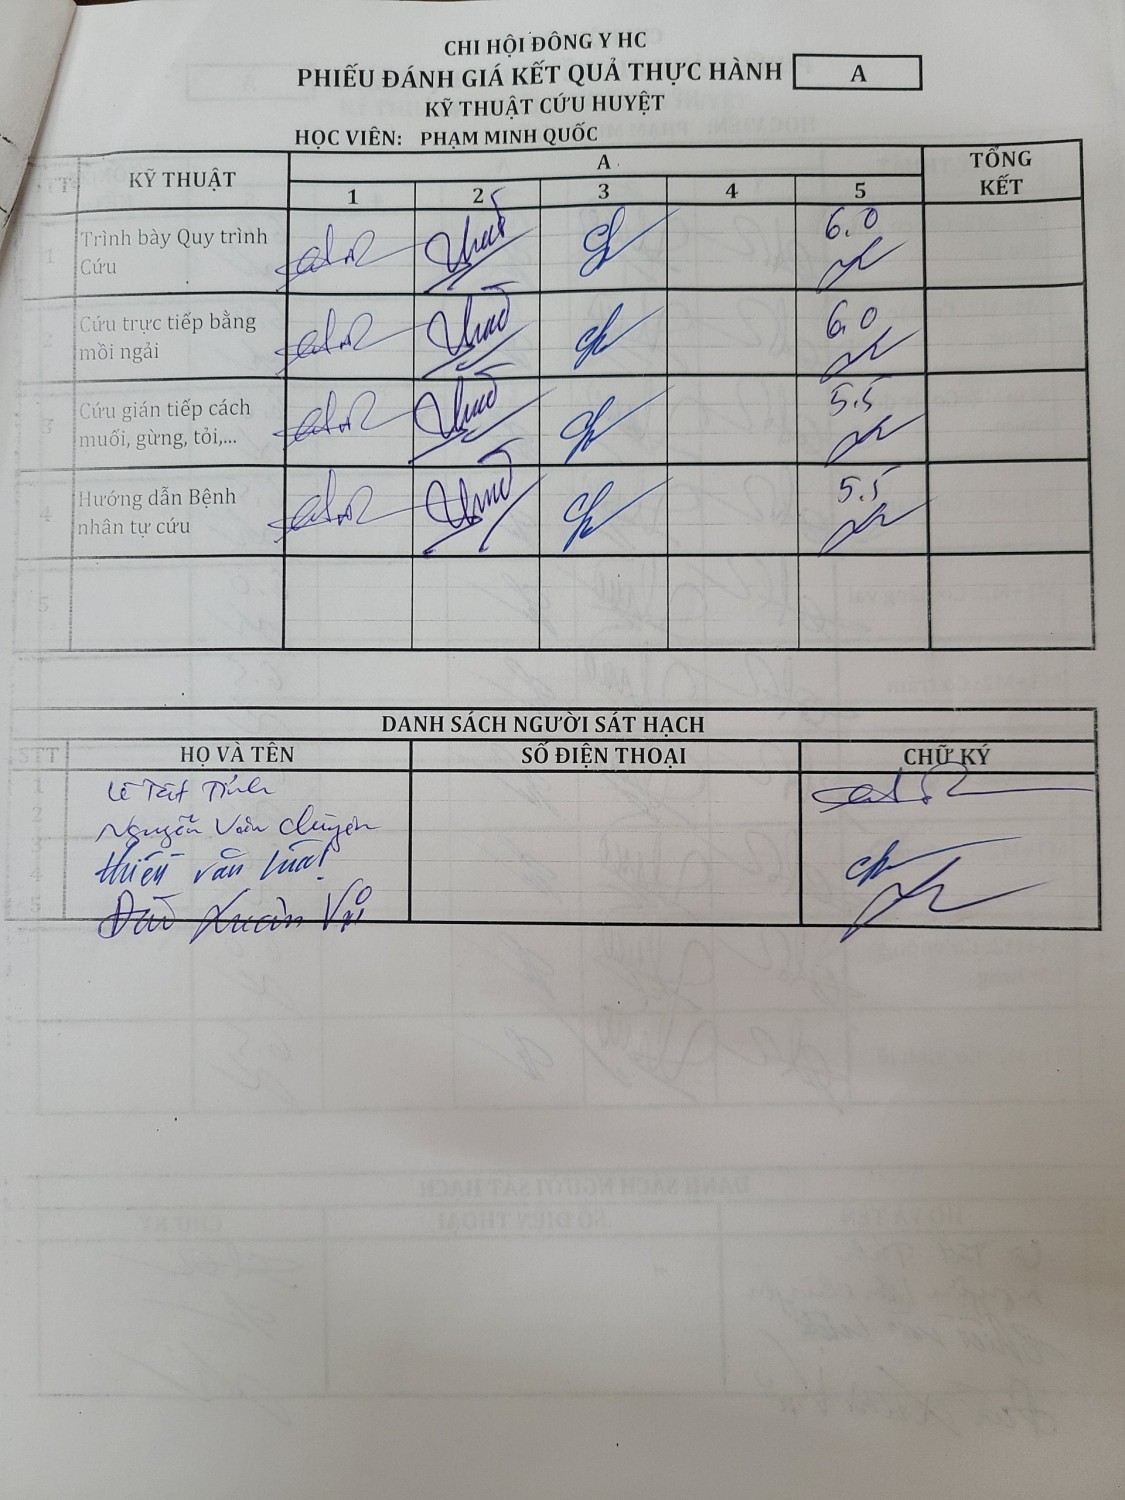 CHI HỘI ĐÔNG Y HC
PHIẾU ĐÁNH GIÁ KẾT QUẢ THỰC HÀNH A
KỸ THUẬT CỨU HUYỆT
HỌC VIÊN: PHẠM MINH QUỐC
STT KỸ THUẬT A TỔNG KẾT
1 2 3 4 5
1 Trình bày Quy trình Cứu 6.0
2 Cứu trực tiếp bằng mồi ngải 6.0
3 Cứu gián tiếp cách muối, gừng, tỏi,... 5.5
4 Hướng dẫn Bệnh nhân tự cứu 5.5
5
DANH SÁCH NGƯỜI SÁT HẠCH
STT HỌ VÀ TÊN SỐ ĐIỆN THOẠI CHỮ KÝ
1 Lê Tất
2 Nguyễn Văn
3 văn
4
5 Xuân